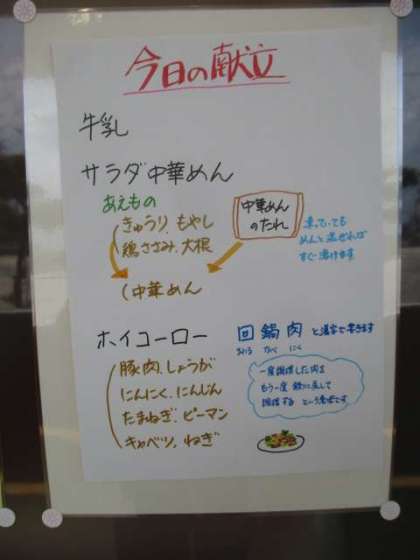 今日の献立
牛乳
サラダ中華めん
あえもの
きゅうり、もやし
鶏ささみ、大根
中華めん
のたれ
凍っていても
めんと混ぜれば
すぐ溶けます
中華めん
ホイコーロー
回鍋肉 と漢字で書きます
まわる なべ にく
豚肉、しょうが
にんにく、にんじん
たまねぎ、ピーマン
キャベツ、ねぎ
一度調理した肉を
もう一度 鍋に戻して
調理する という意味です